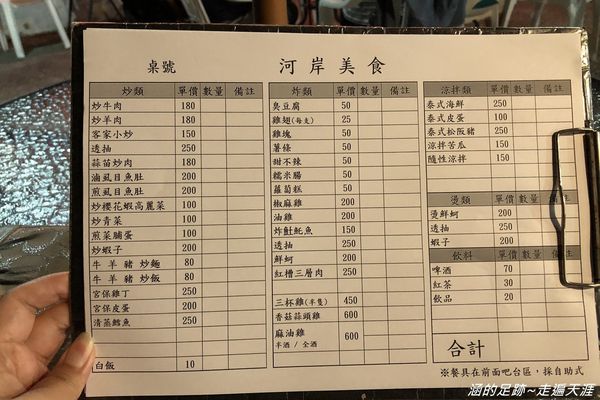 桌號 河岸美食
炒類 單價 數量 備註
炒牛肉 180
炒羊肉 180
客家小炒 150
透抽 250
蒜苗炒肉 180
滷虱目魚肚 200
煎虱目魚肚 200
炒櫻花蝦高麗菜 100
炒青菜 100
煎菜脯蛋 100
炒蝦子 200
牛 羊 豬 炒麵 80
牛 羊 豬 炒飯 80
宮保雞丁 250
宮保皮蛋 200
清蒸鱈魚 250
白飯 10
炸類 單價 數量 備註
臭豆腐 50
雞翅(每支) 25
雞塊 50
薯條 50
甜不辣 50
糯米腸 50
蘿蔔糕 50
椒麻雞 200
油雞 200
炸魠魠魚 150
透抽 250
鮮蚵 200
紅槽三層肉 250
三杯雞(半隻) 450
香菇蒜頭雞 600
麻油雞 600
半酒 / 全酒
涼拌類 單價 數量 備註
泰式海鮮 250
泰式皮蛋 100
泰式松阪豬 250
涼拌苦瓜 150
隨性涼拌 150
燙類 單價 數量 備註
燙鮮蚵 200
透抽 250
蝦子 200
飲料 單價 數量 備註
啤酒 70
紅茶 30
飲品 20
合計
※餐具在前面吧台區，採自助式
涵的足跡~走遍天涯